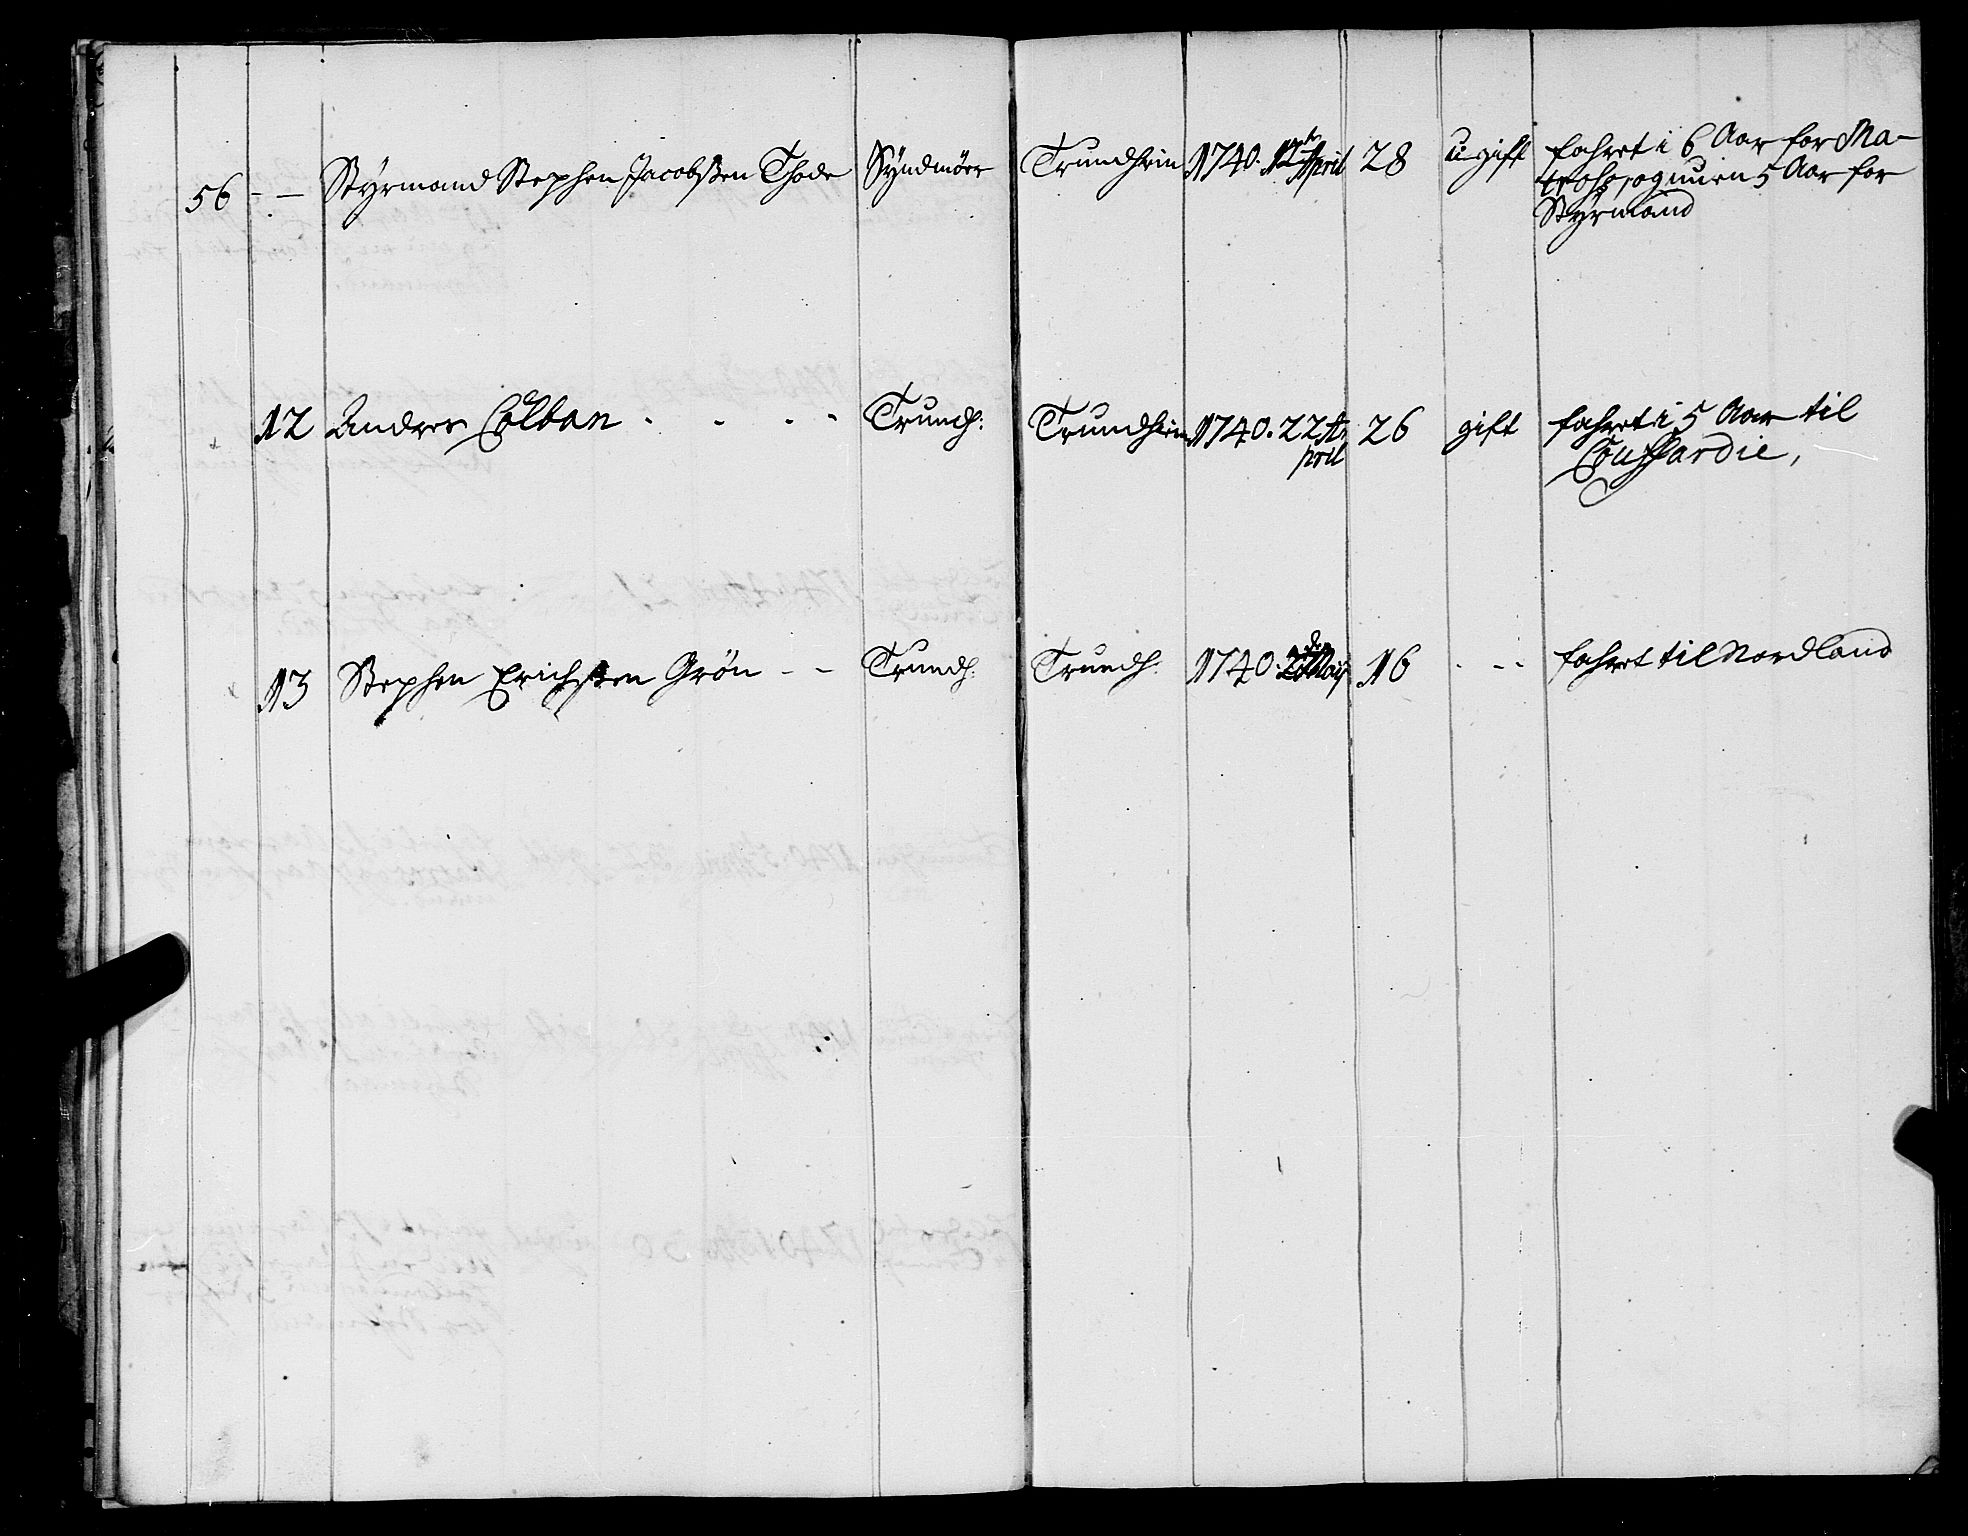 56 - - Styrmand Stephen Jacobsen Thode Syndmöer Trundheim 1740. 12te April 28 ugift fahret i 6 Aar for Ma-
trohs, og nu en 5 Aar for
Styrmand
12 Andres Colban - - - - Trundh: Trundheim 1740. 22 A- 26 gift fahret i 5 Aar til
pril Couffardie,
13 Stephen Erichsen Grön - - Trundh: Trundh: 1740. Maij 16 - - - fahret til Nordland